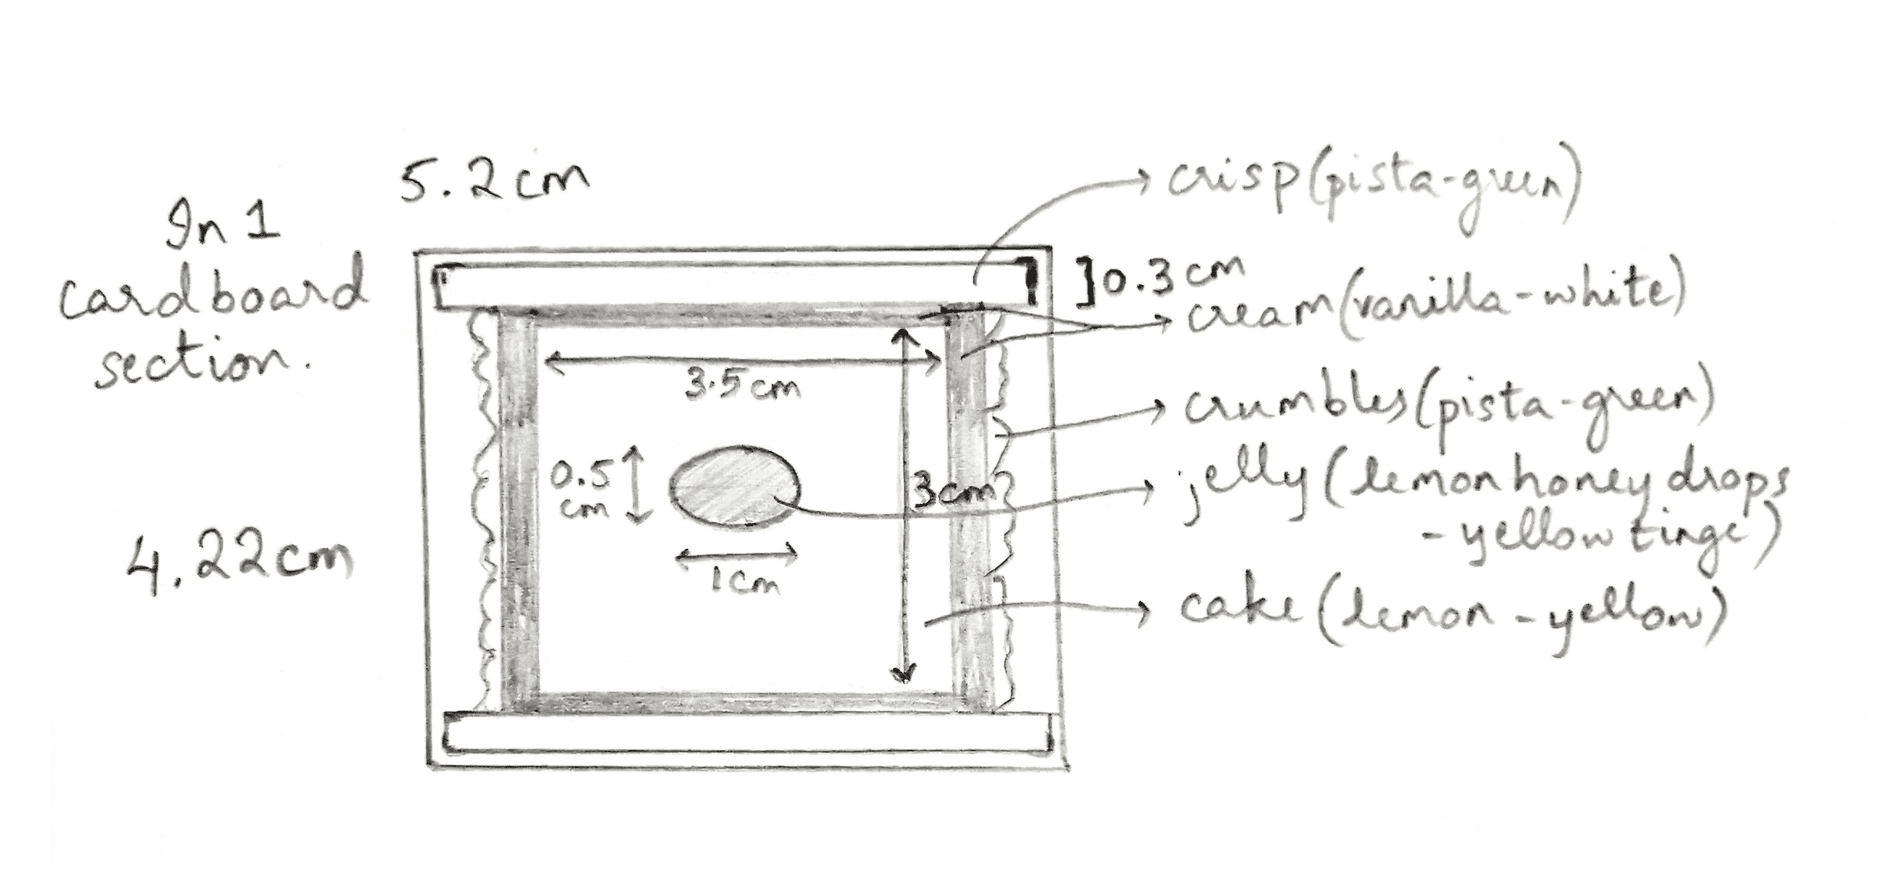 5.2cm
In 1
cardboard
section.
4.22cm
crisp(pista-green)
]0.3cm
cream(vanilla-white)
3.5cm
crumbles(pista-green)
0.5
cm
3cm
jelly(lemon honey drops
-yellow tinge)
1cm
cake(lemon-yellow)